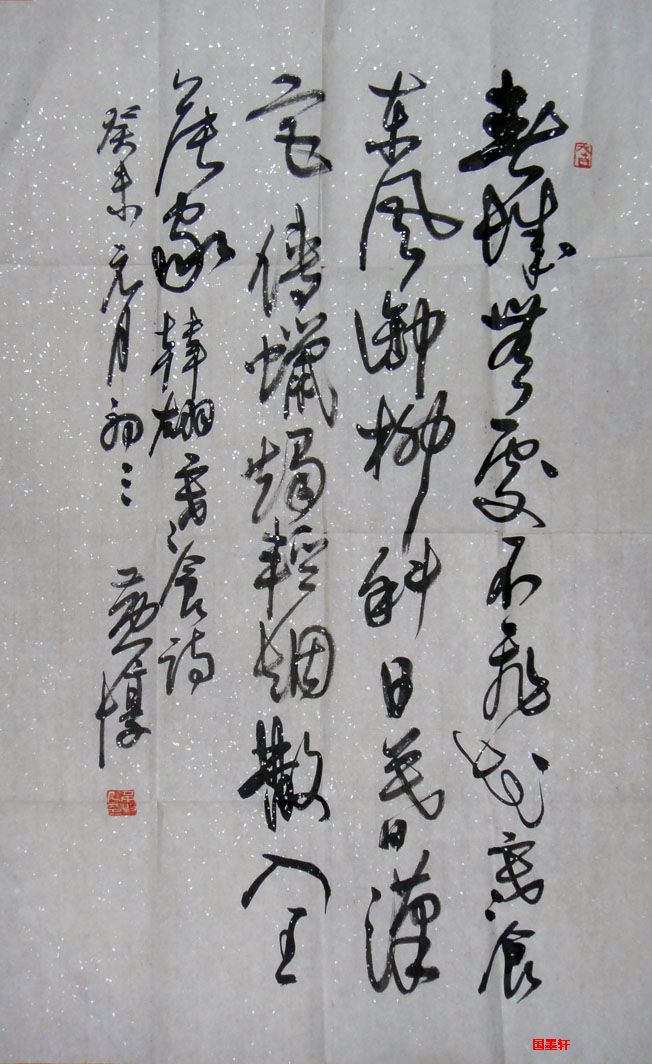 春城無處不飛花寒食
東風御柳斜日暮漢
宫傳蠟燭輕烟散入五
侯家韓翃寒食詩
癸未元月初三
国墨轩